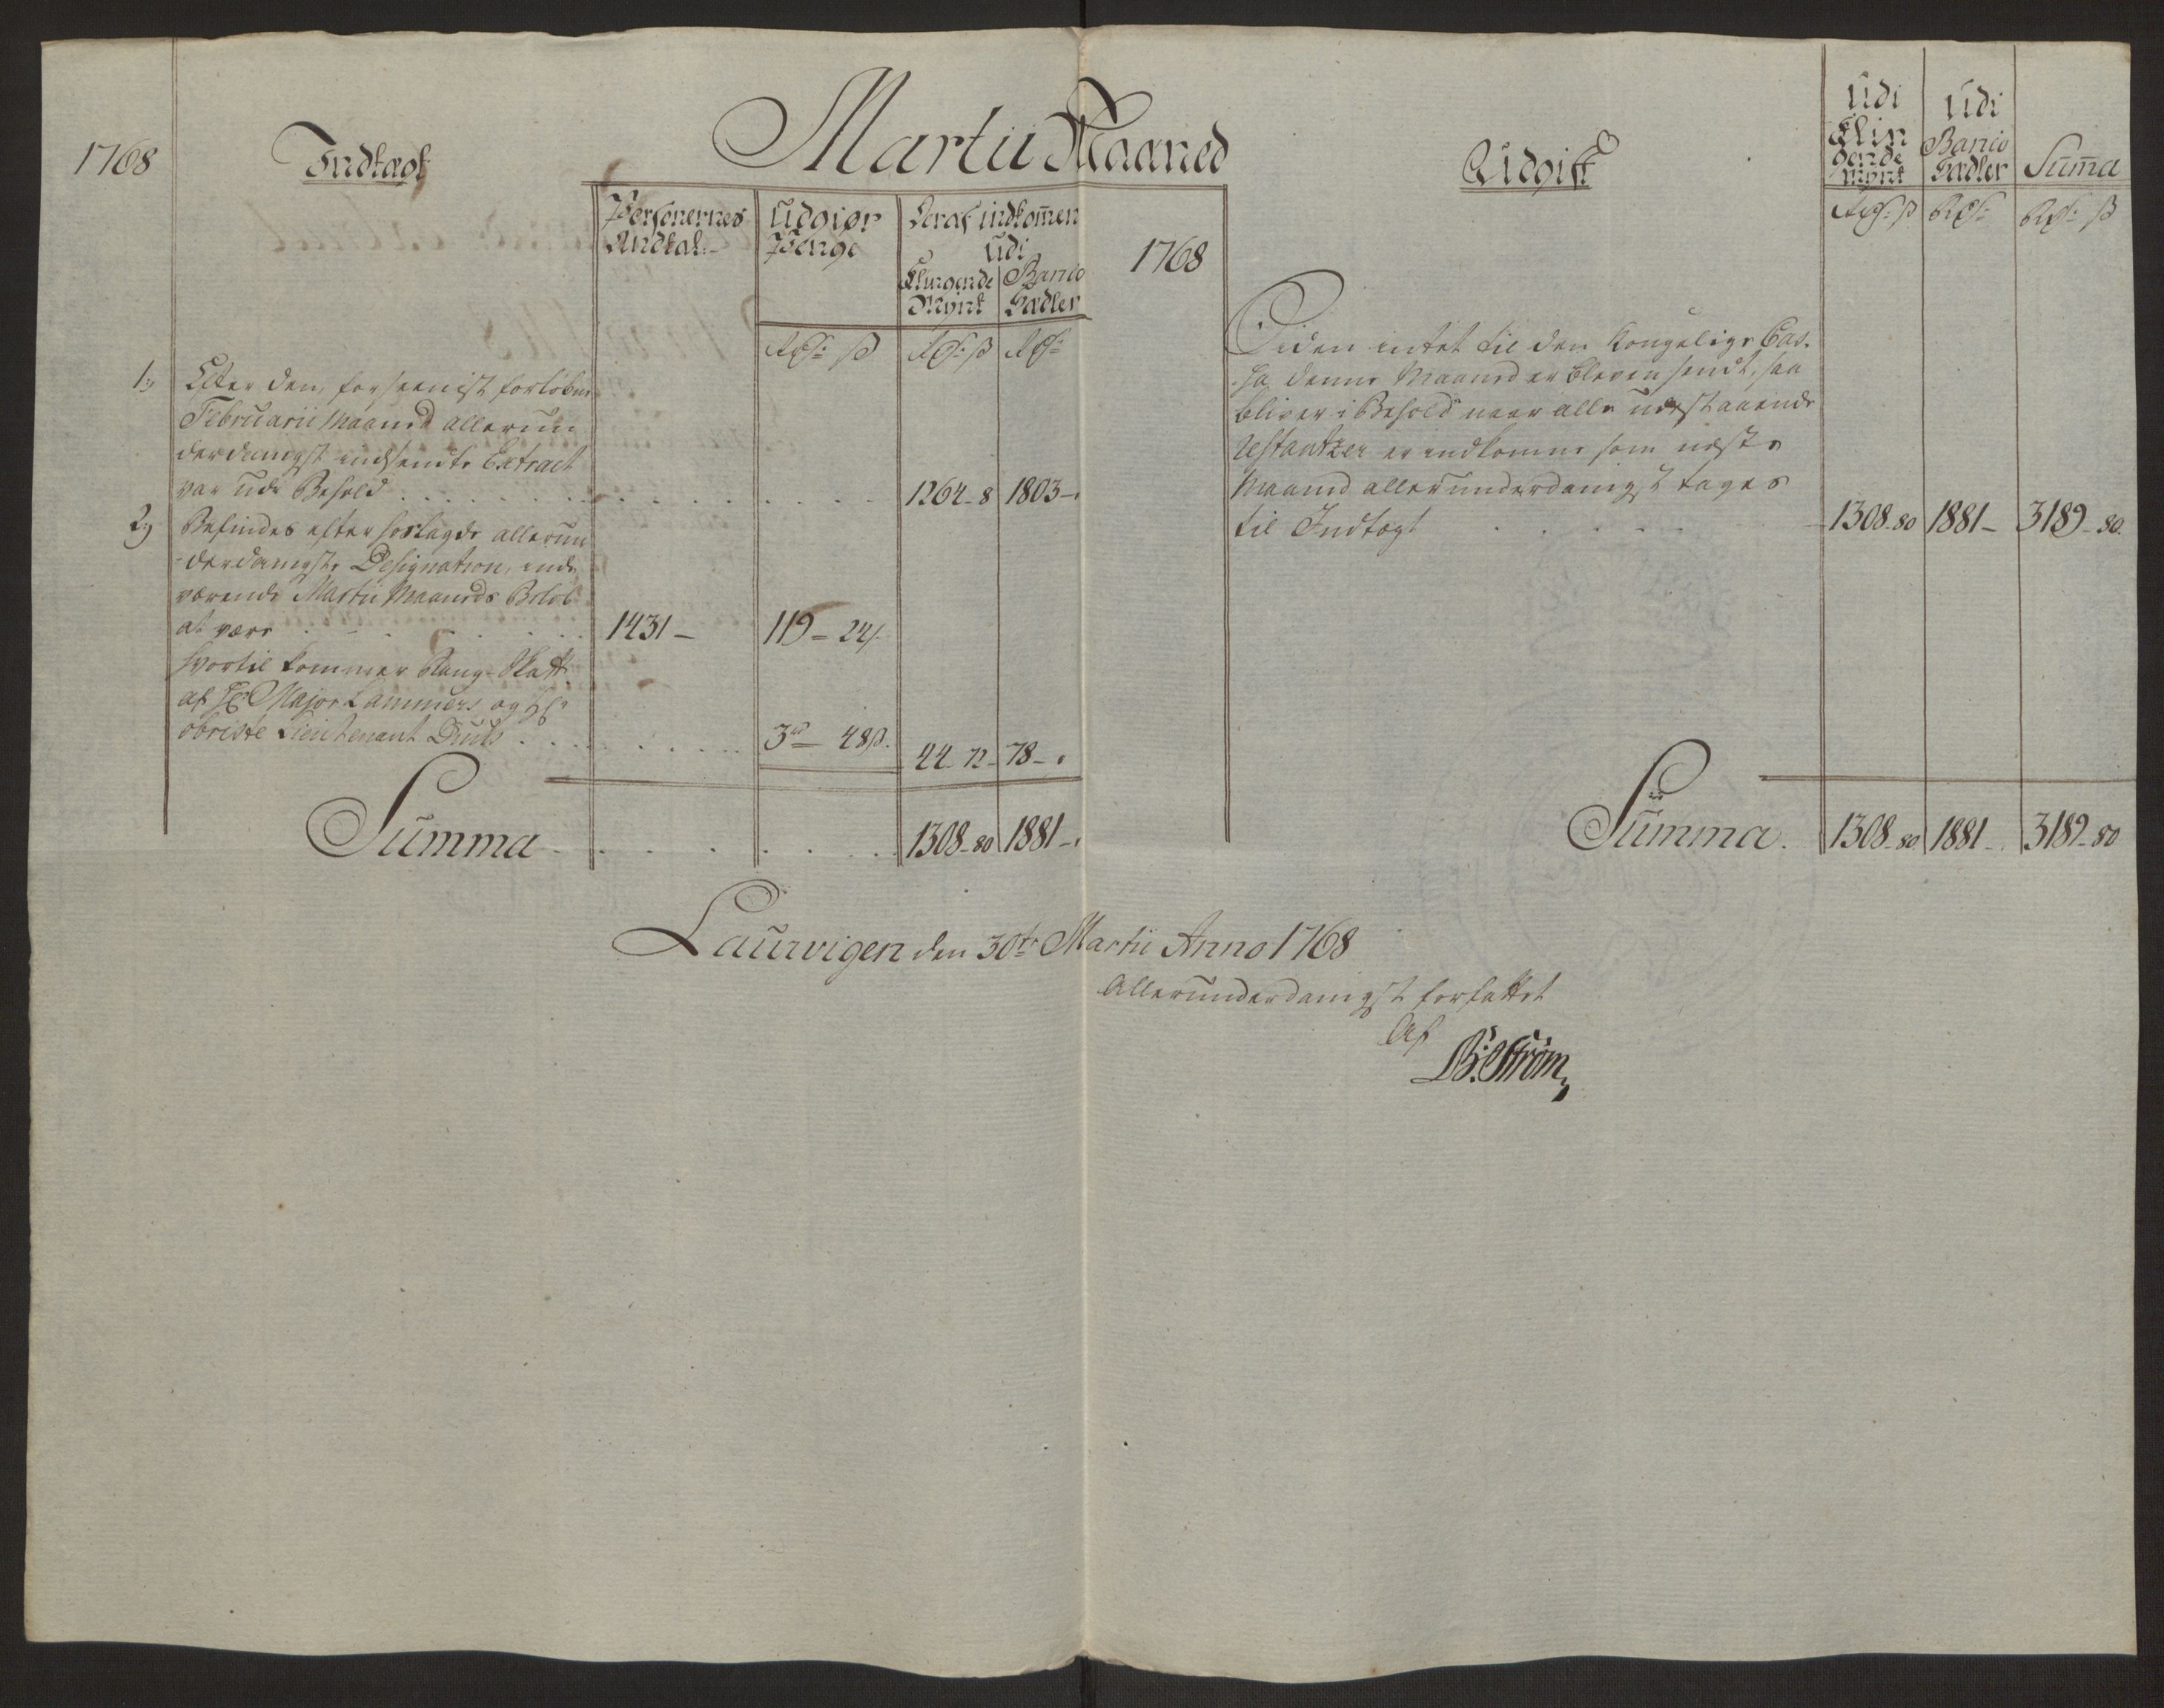 Martii Maaned
1768
Indtægt
Personernes
Andtal:
Udgiør
Penge
Deraf indkom̄en
Udi
Klingende
Mynt
Banco
Sædler
Rd: ß
Rd: ß
Rd:
1.)
Efter den, for seenist forløbne
Februarii Maaned allerun
derdanigst indsendte Extract
var udi Behold . . . . . . . . 1264 - 8 1803 -
2.)
Befindes efter hoslagde allerun
-derdanigste Designation, inde
værende Martii Maaneds Beløb
at være . . . . . . 1431 - 119 - 24ß.
hvortil kommer Rang-Skatt
af Hr Major Lammers og Hr
obriste Lieutenant Duus . . . . 3rd - 48ß. 44 - 72 - 78 -
Summa . . . . . . 1308 - 80 1881 -
1768
Udgift
Udi
Klin
gende
Mynt
Udi
Banco
Sædler
Sum̄a
Rd: ß
Rd:
Rd: ß
Siden intet til den Kongelige Cas-
sa denne Maaned er bleven sendt, saa
bliver i Behold naar alle udestaaende
restantzer er indkomne som næste
Maaned allerunderdanigst tages
til Indtægt . . . . . 1308 - 80 1881 - 3189 - 80.
Summa. 1308 - 80 1881 - 3189 - 80
Laurvigen den 30te Martii Anno 1768
Allerunderdanigst forfattet
Af